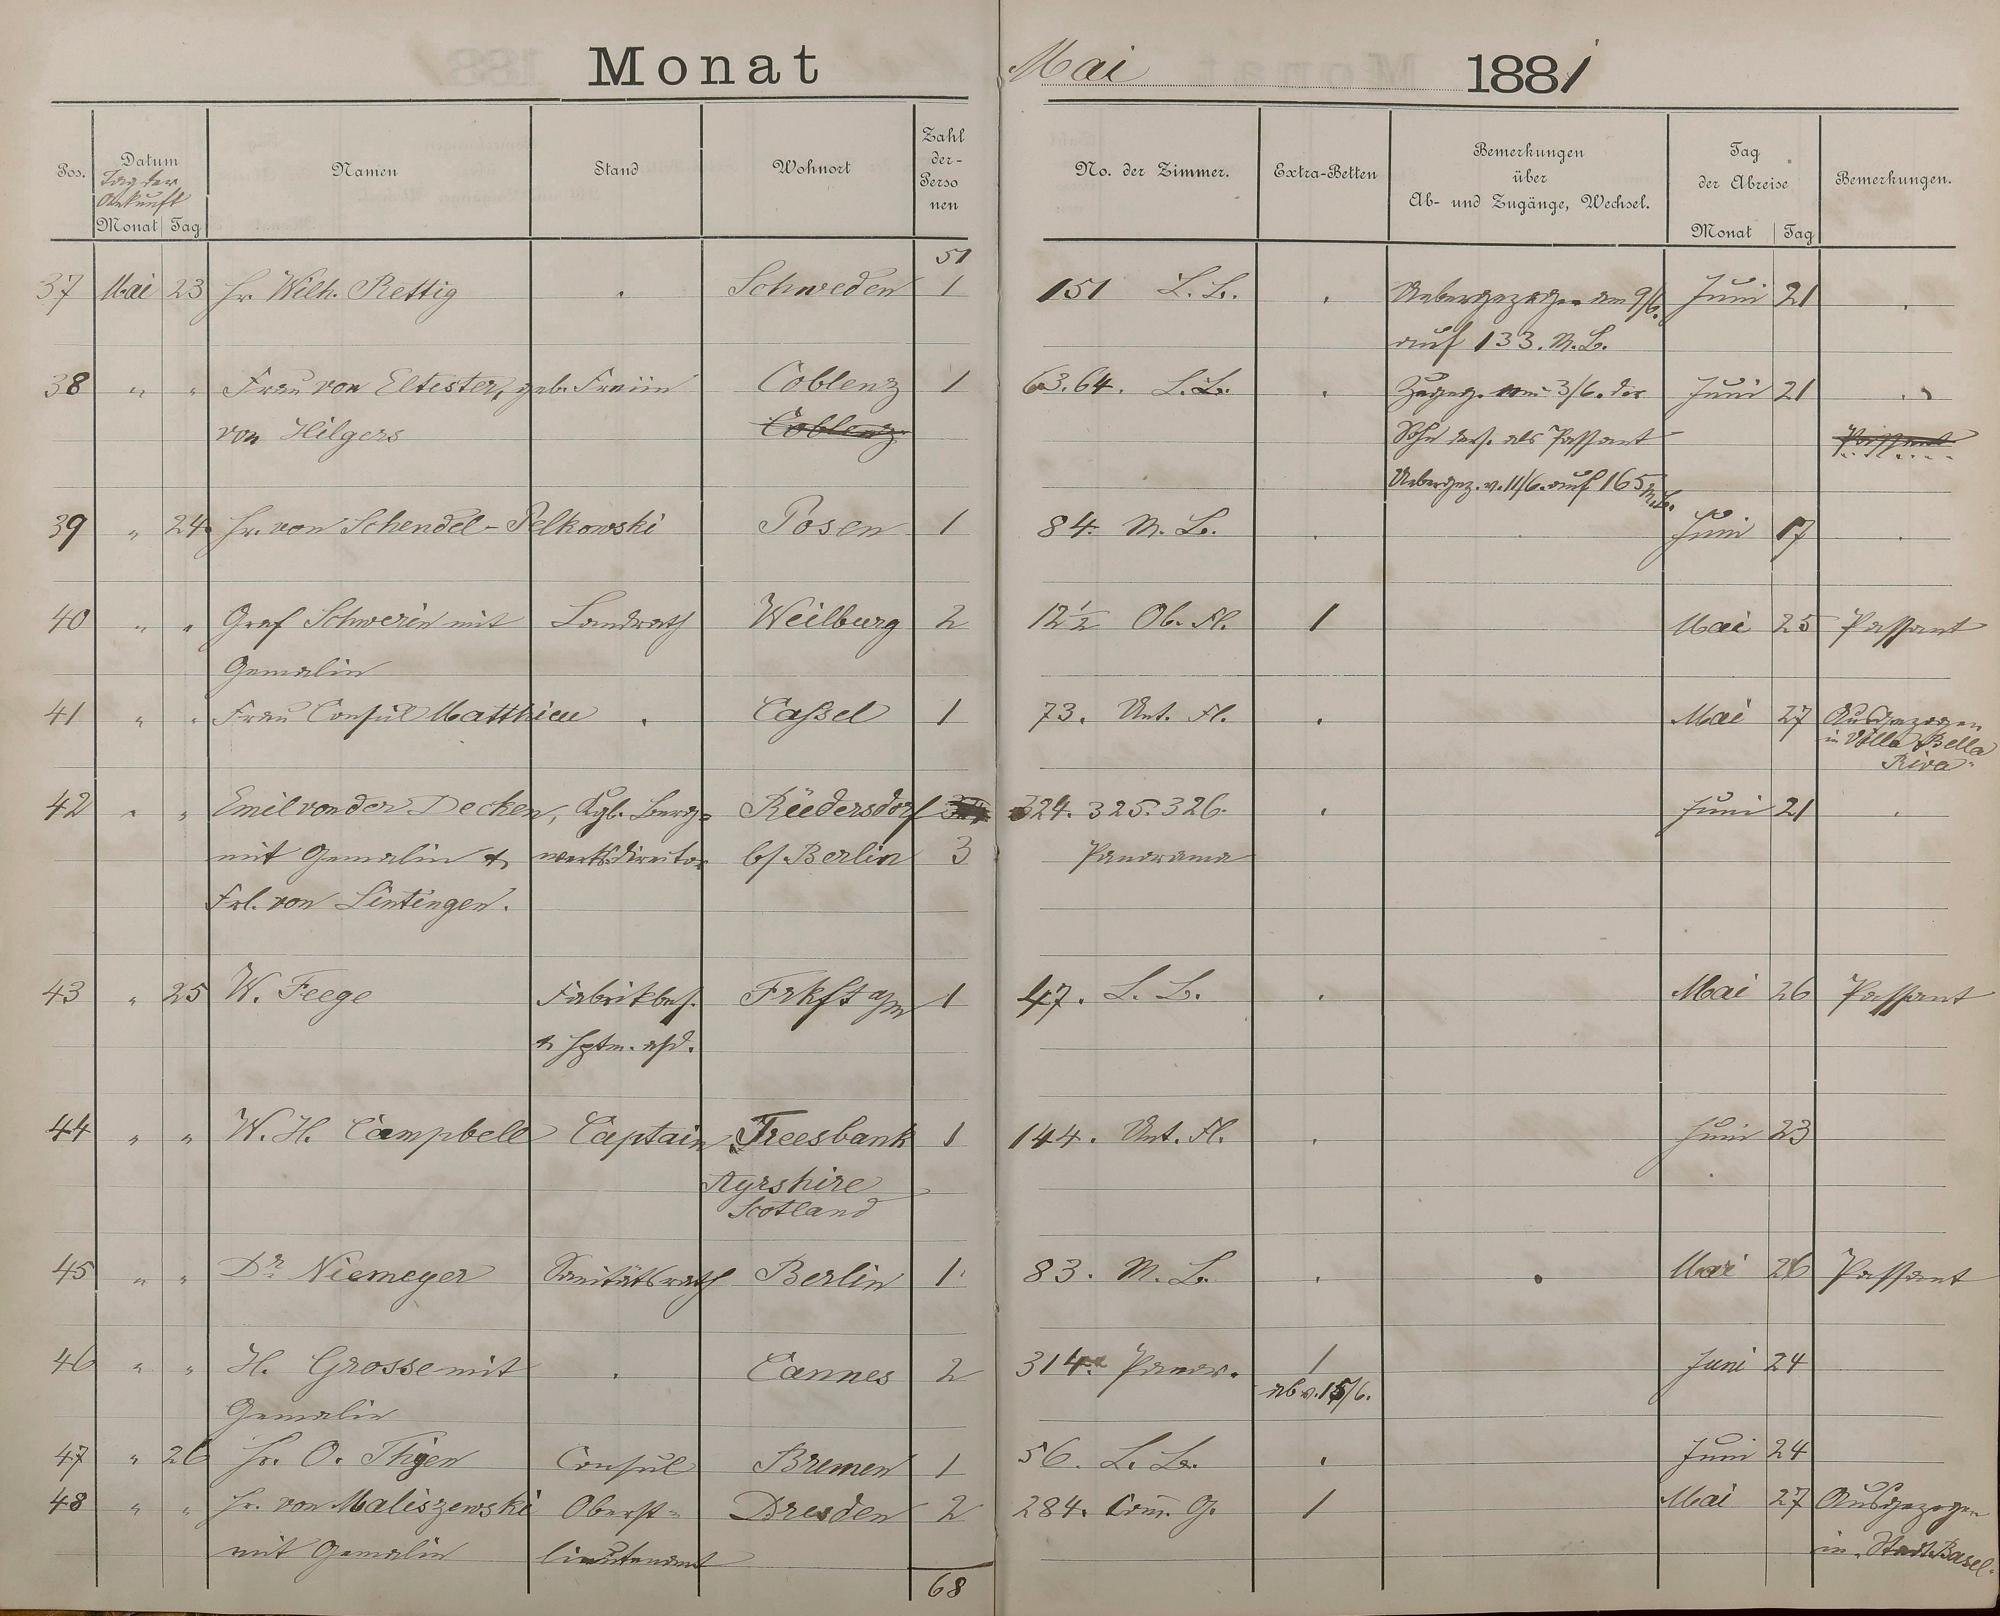 Monat Mai 1881
Pos. Datum Namen Stand Wohnort Zahl der Personen No. der Zimmer. Extra-Betten Bemerkungen über Ab- und Zugänge, Wechsel. Tag der Abreise Bemerkungen.
Tag der Ankunft
Monat Tag Monat Tag
51
37 Mai 23 Hr. Wilh. Rettig . Schweden 1 151 L. B. . Uebergezogen am 9/6. Juni 21 .
auf 133. M. B.
38 " " Frau von Eltester, geb. Freiin Coblenz 1 63. 64. L. B. . Zugeg. vom 3/6. der Juni 21 .
von Hilgers Coblenz Sohn ders. als Passant Passant
Uebergez. v. 11/6. auf 165 M. B.
39 " 24 Hr. von Schendel-Pelkowski Posen 1 84. M. B. . . Juni 17 .
40 " " Graf Schwerin mit Landrath Weilburg 2 12 1/2 Ob. Fl. 1 Mai 25 Passant
Gemalin
41 " " Frau Consul Matthieu . Caßel 1 73. Unt. Fl. . Mai 27 Ausgezogen
in Villa Bella
Riva
42 " " Emil von der Decken, Kgl. Berg= Rüdersdorf 324. 325. 326. . Juni 21 .
mit Gemalin & werksdirektor b/ Berlin 3 Panorama
Frl. von Lintingen.
43 " 25 W. Feege Fabrikbes. Frkft a/m 1 47. L. B. . Mai 26 Passant
& Hptm. a/d.
44 " " W. H. Campbell Captain Treesbank 1 144. Unt. Fl. . Juni 23
Ayrshire
Scotland
45 " " Dr. Niemeyer Sanitätsrath Berlin 1 83. M. B. . . Mai 26 Passant
46 " " H. Grosse mit . Cannes 2 314. Panor. 1 Juni 24
Gemalin ab v. 15/6.
47 " 26 Hr. O. Thyen Consul Bremen 1 56. L. B. . Juni 24
48 " " Hr. von Maliszewski Oberst= Dresden 2 284. Com. G. 1 Mai 27 Ausgezogen
mit Gemalin lieutenant in Stadt Basel.
68